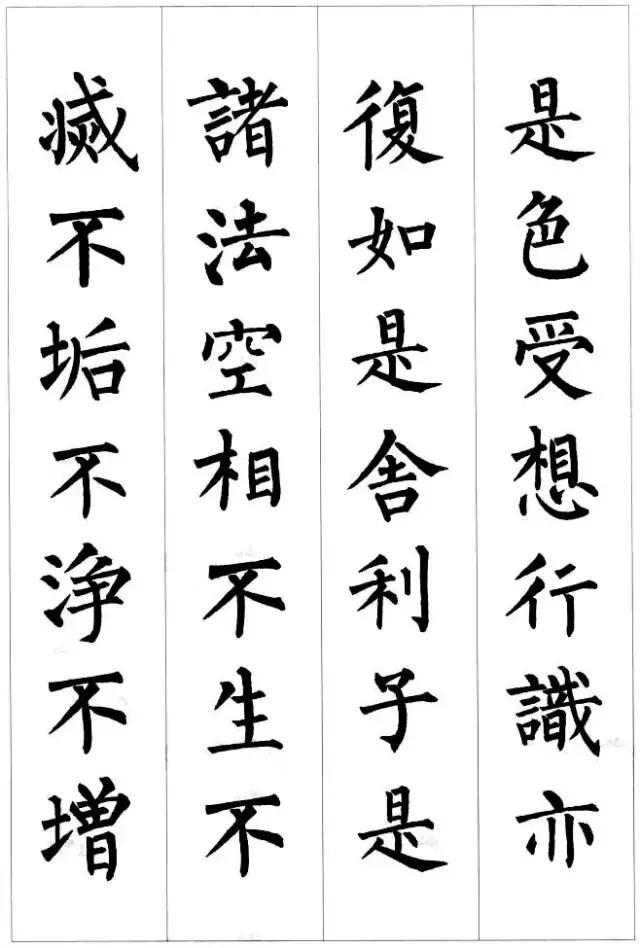 是色受想行識亦
復如是舍利子是
諸法空相不生不
滅不垢不浄不増